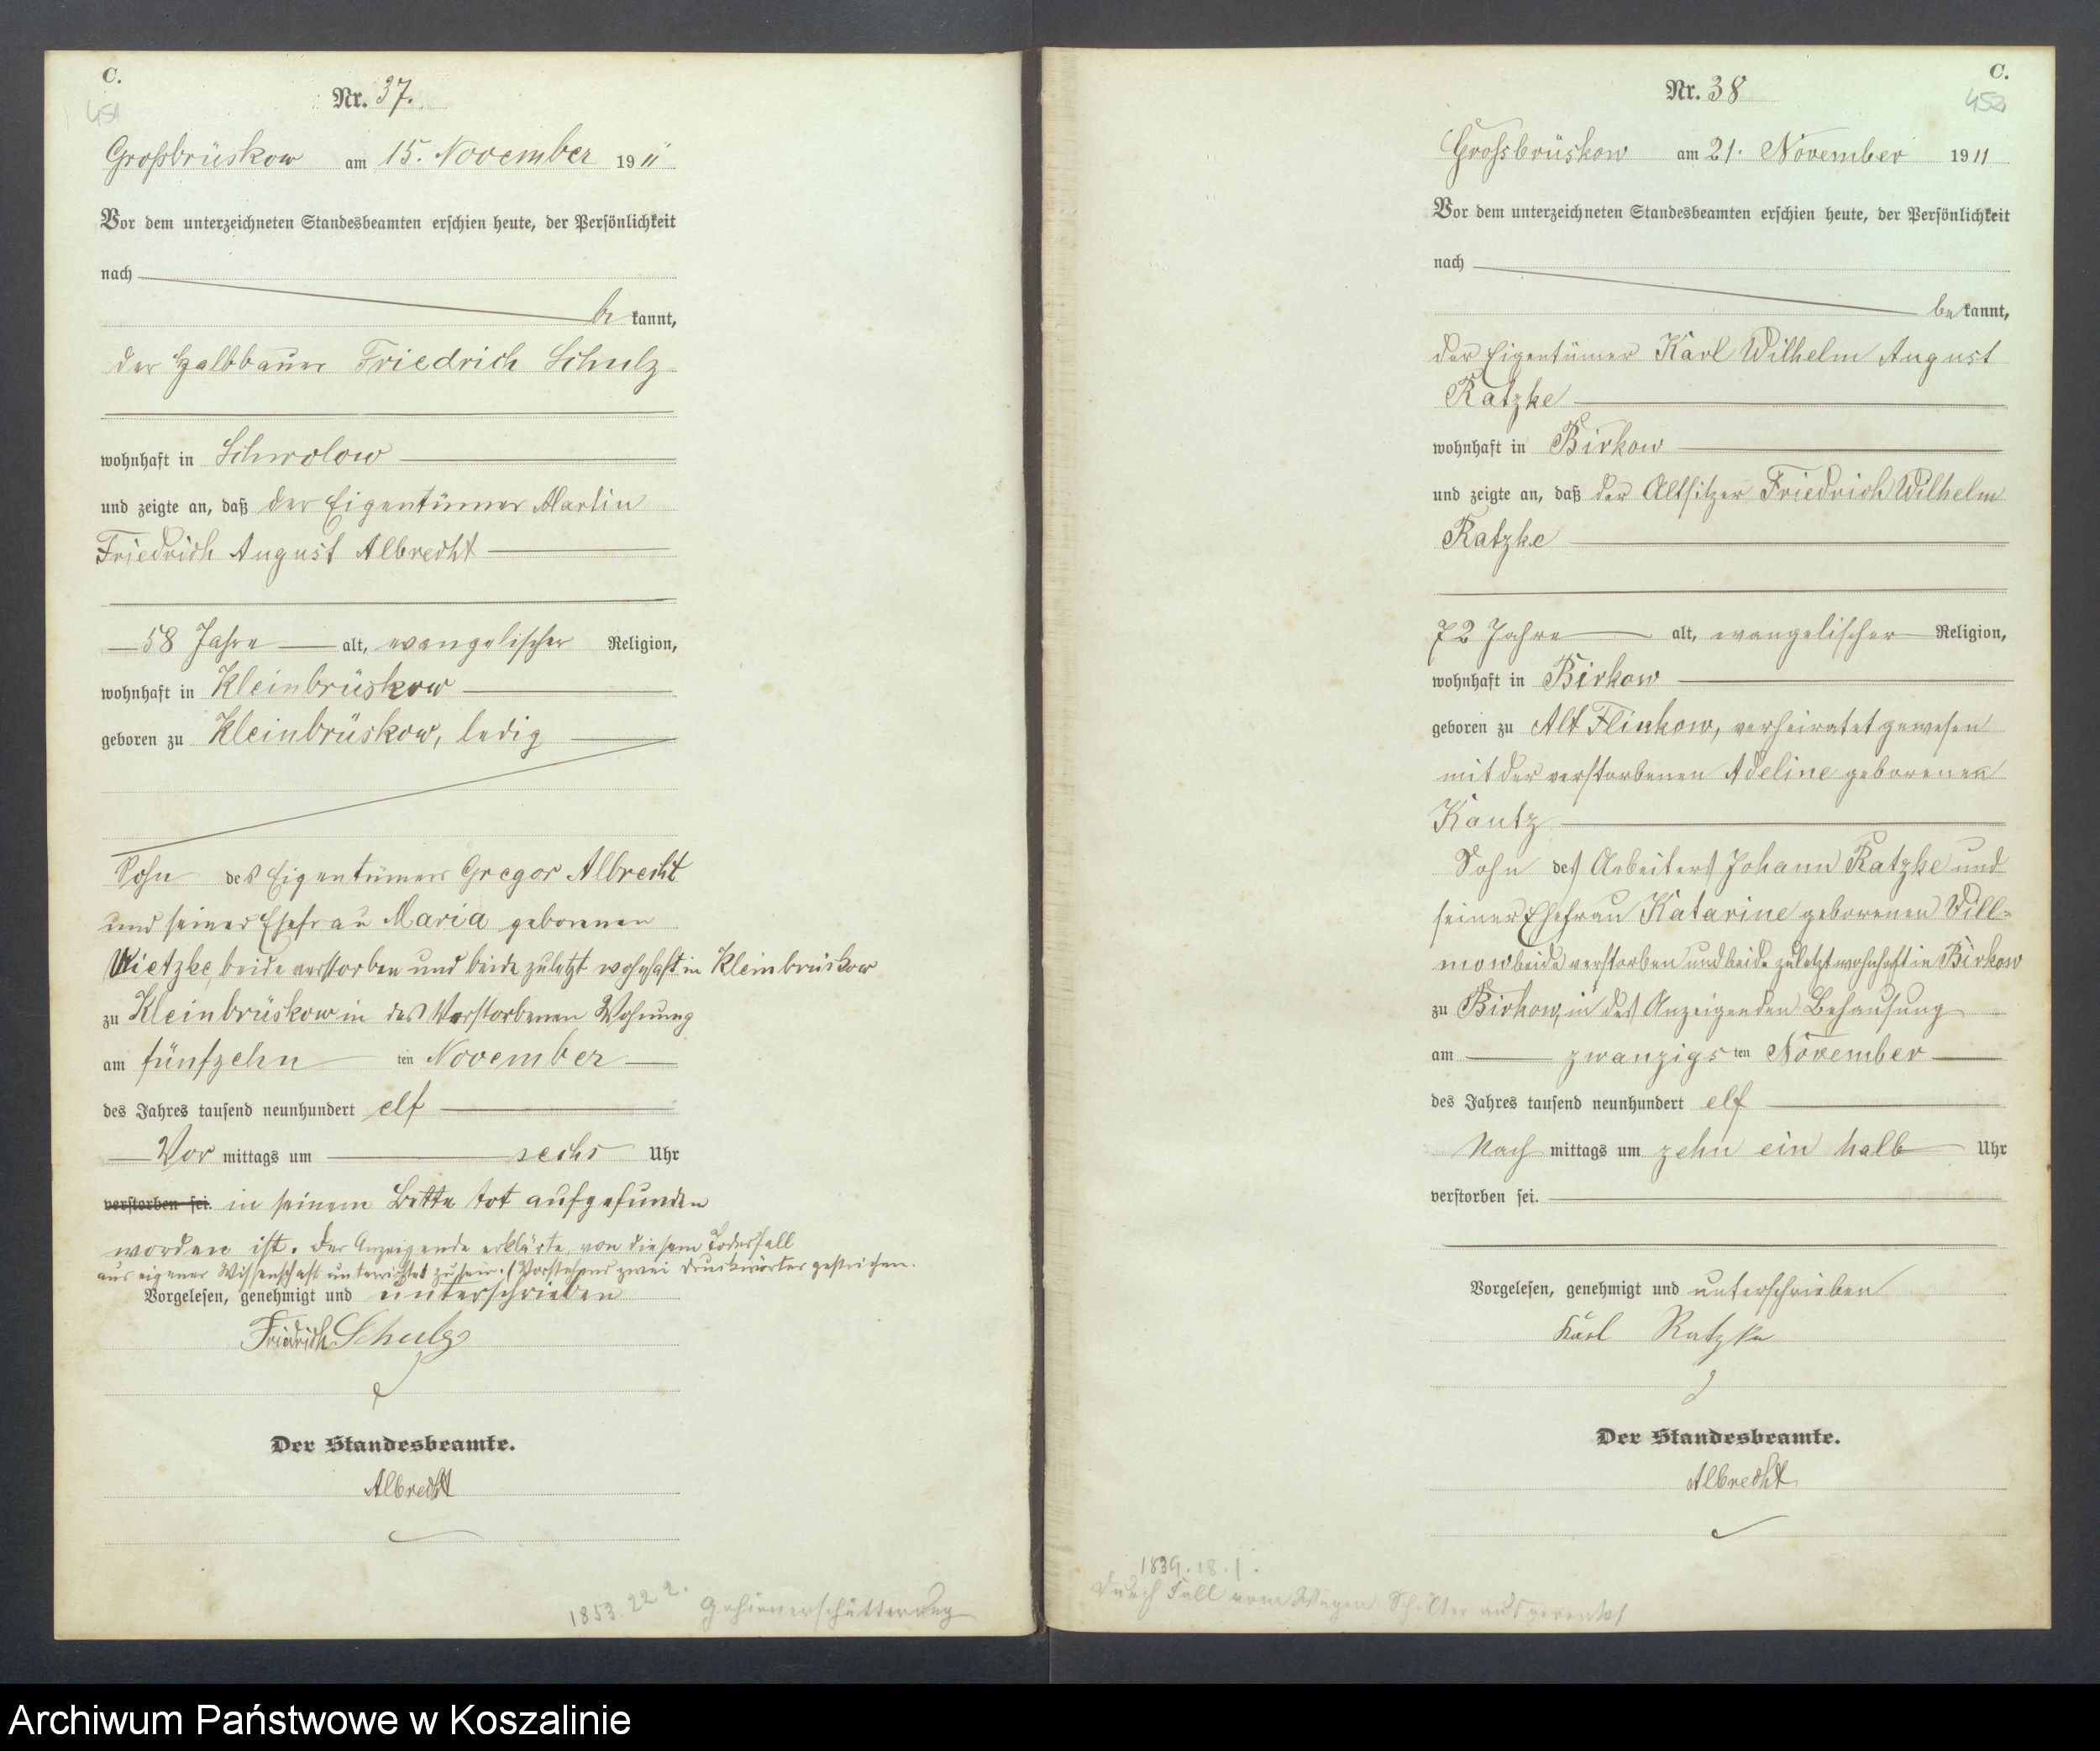 C.
451
Nr. 37.
Großbrüskow am 15. November 1911
Vor dem unterzeichneten Standesbeamten erschien heute, der Persönlichkeit
nach
be kannt,
der Halbbauer Friedrich Schulz
wohnhaft in Schwolow
und zeigte an, daß der Eigentümer Martin
Friedrich August Albrecht
58 Jahre alt, evangelischer Religion,
wohnhaft in Kleinbrüskow
geboren zu Kleinbrüskow, ledig
Sohn des Eigentümers Gregor Albrecht
und seiner Ehefrau Maria geborenen
Wietzke, beide verstorben und beide zuletzt wohnhaft in Kleinbrüskow
zu Kleinbrüskow in des Verstorbenen Wohnung
am fünfzehn ten November
des Jahres tausend neunhundert elf
Vor mittags um sechs Uhr
verstorben sei. in seinem Bette tot aufgefunden
worden ist. Der Anzeigende erklärte, von diesem Todesfall
aus eigener Wissenschaft unterrichtet zu sein. (Vorstehend zwei Druckwörter gestrichen.
Vorgelesen, genehmigt und unterschrieben
Friedrich Schulz
Der Standesbeamte.
Albrecht
1853. 22. 2. Gehirnerschütterung
C.
452
Nr. 38
Grossbrüskow am 21. November 1911
Vor dem unterzeichneten Standesbeamten erschien heute, der Persönlichkeit
nach
be kannt,
der Eigentümer Karl Wilhelm August
Ratzke
wohnhaft in Birkow
und zeigte an, daß der Altsitzer Friedrich Wilhelm
Ratzke
72 Jahre alt, evangelischer Religion,
wohnhaft in Birkow
geboren zu Alt Flinkow, verheiratet gewesen
mit der verstorbenen Adeline geborenen
Kautz
Sohn des Arbeiters Johann Ratzke und
seiner Ehefrau Katarine geborenen Vill-
mow beide verstorben und beide zuletzt wohnhaft in Birkow
zu Birkow, in des Anzeigenden Behausung
am zwanzigs ten November
des Jahres tausend neunhundert elf
Nach mittags um zehn ein halb Uhr
verstorben sei.
Vorgelesen, genehmigt und unterschrieben
Karl Ratzke
Der Standesbeamte.
Albrecht
1839. 18. 1.
Durch Fall vom Wagen Schulter ausgerenkt
Archiwum Państwowe w Koszalinie